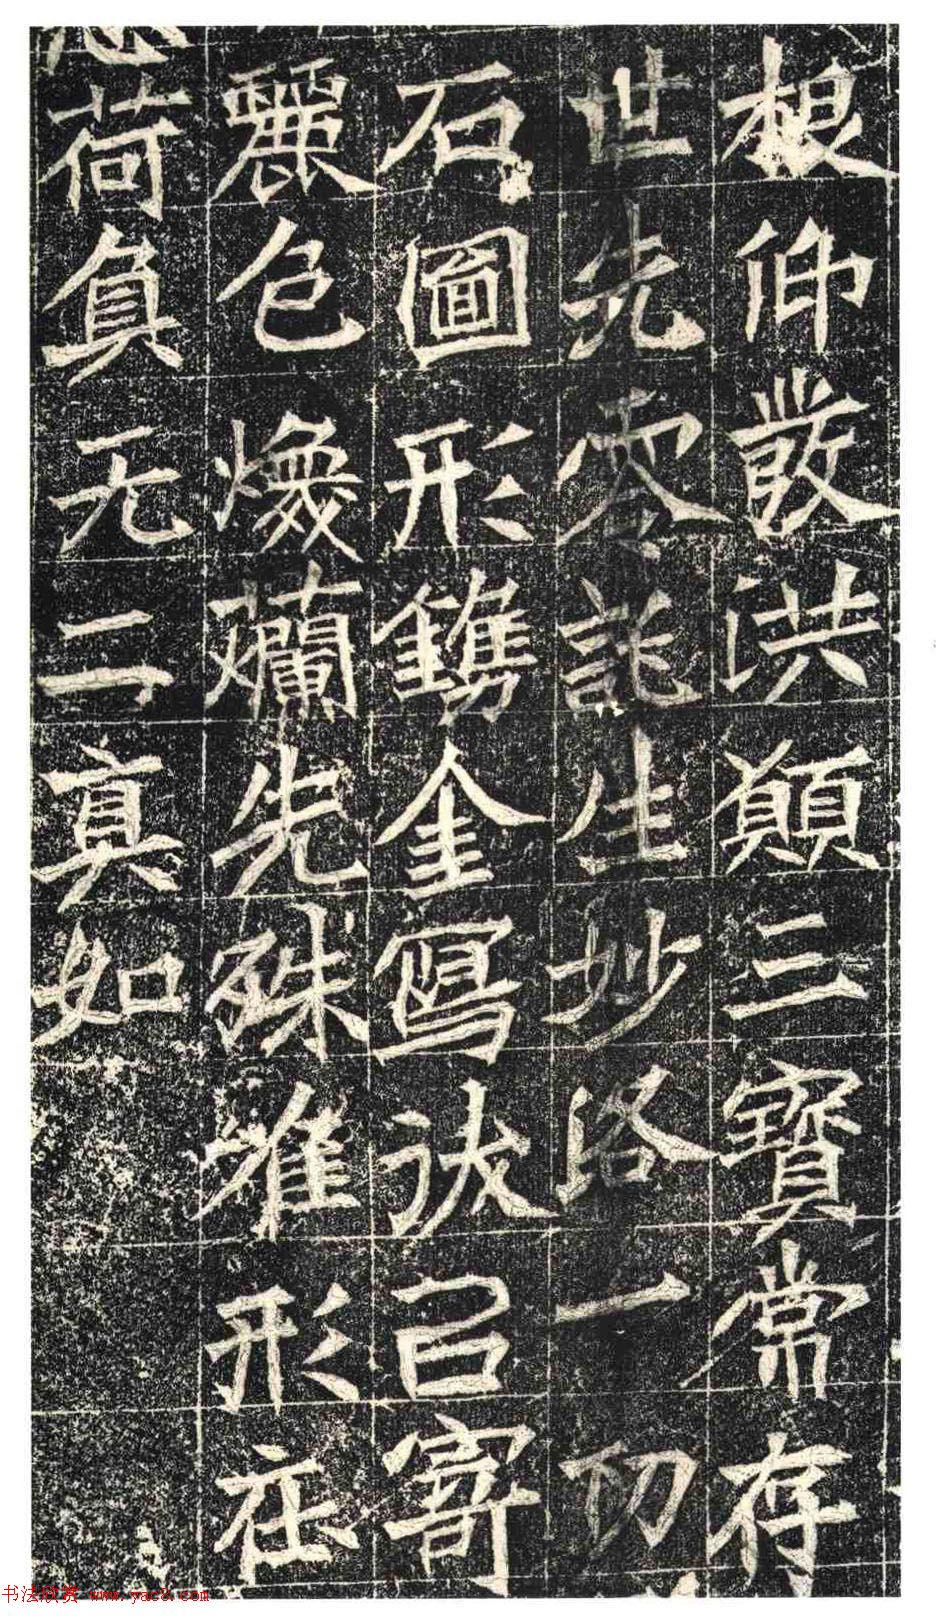 根仰發洪願三寶常存
世先零託生妙洛一切
石圖形鐫金寫狀召寄
麗色煥爛先殊唯形在
荷負无二真如
书法欣赏 www.yac8.com